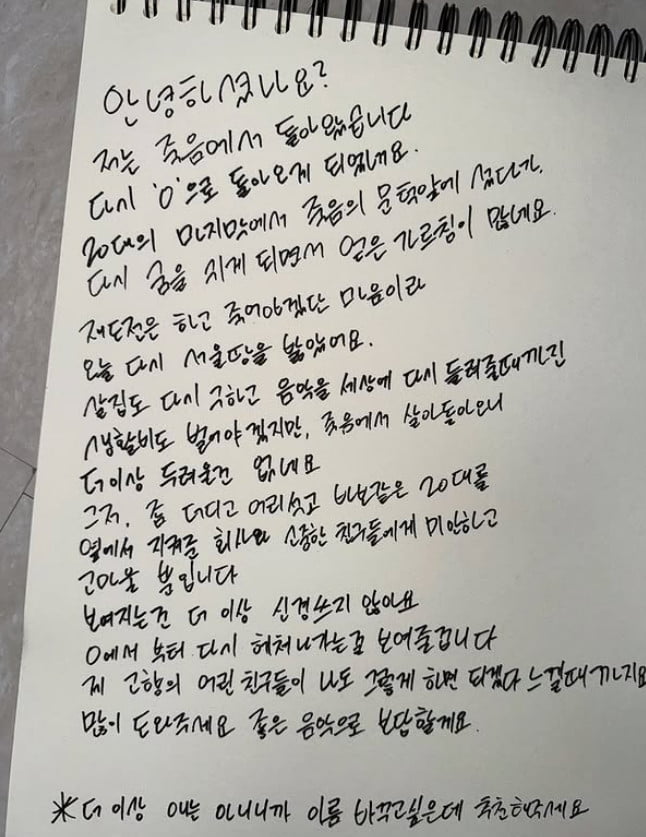 안녕하셨나요?
저는 죽음에서 돌아왔습니다
다시 '0'으로 돌아오게 되었네요.
20대의 마지막에서 죽음의 문턱앞에 섰다가,
다시 숨을 쉬게 되면서 얻은 가르침이 많네요.
재도전은 하고 죽어야겠단 마음이라
오늘 다시 서울땅을 밟았어요.
살집도 다시 구하고 음악을 세상에 다시 들려줄때까진
생활비도 벌어야 겠지만, 죽음에서 살아돌아오니
더이상 두려울건 없네요
그저, 좀 더디고 어리섯고 바보같은 20대를
옆에서 지켜준 회사와 소중한 친구들에게 미안하고
고마울 뿐입니다
보여지는건 더 이상 신경쓰지 않아요
0에서 부터 다시 헤쳐나가는걸 보여줄겁니다
제 고향의 어린 친구들이 나도 그렇게 하면 되겠다 느낄때까지요
많이 도와주세요 좋은 음악으로 보답할게요.
*더 이상 애는 아니니까 이름 바꾸고싶은데 추천해주세요